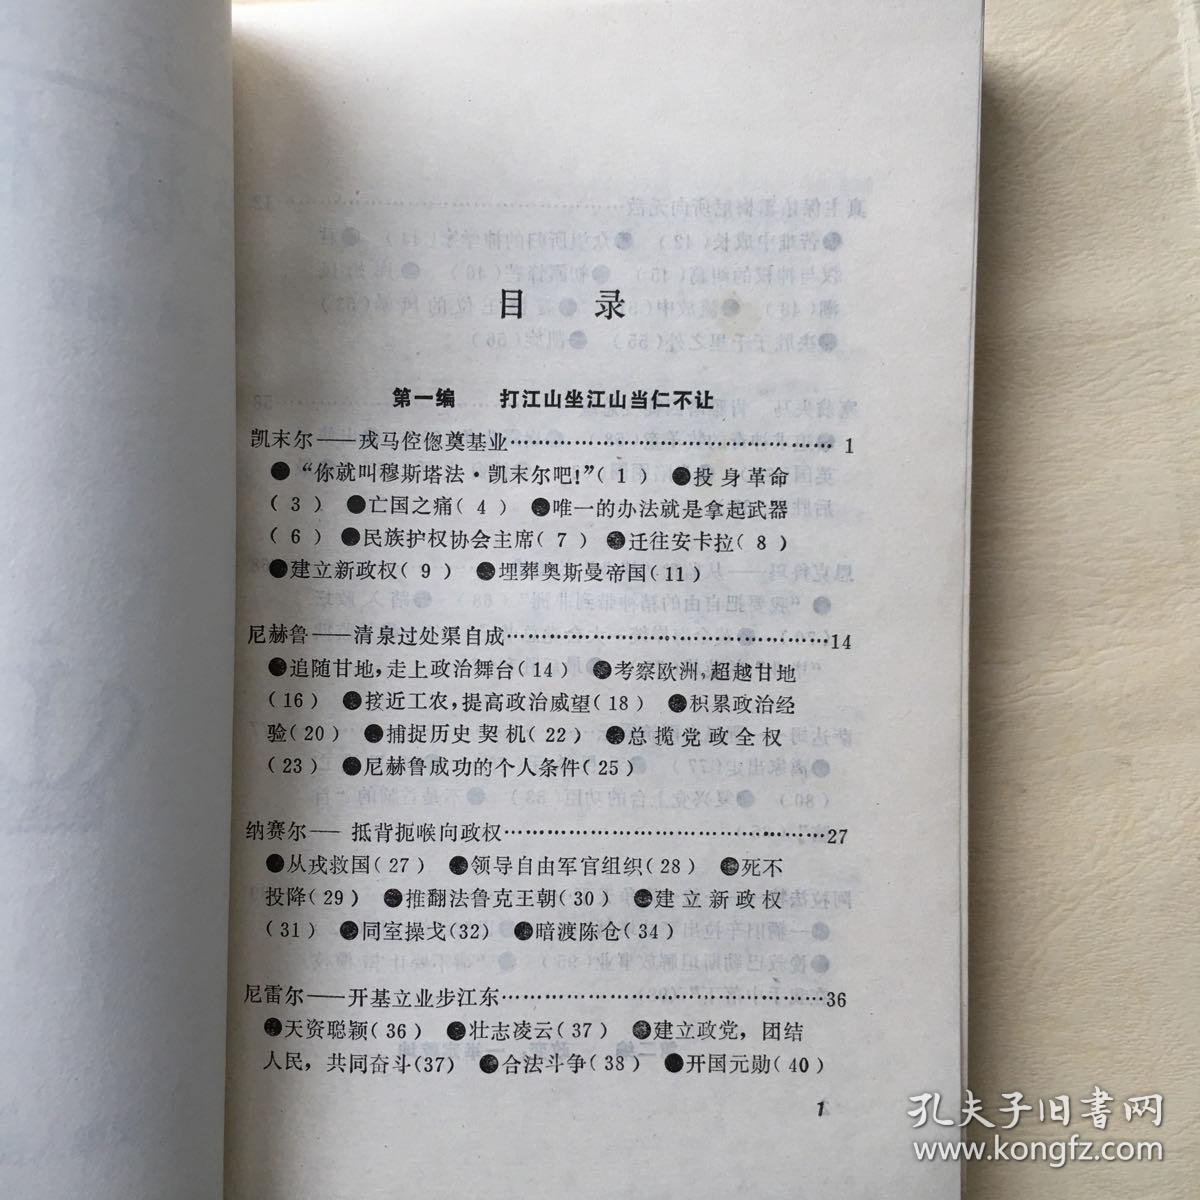 目 录
第一编 打江山坐江山当仁不让
凯末尔——戎马倥偬奠基业……………………………1
●“你就叫穆斯塔法·凯末尔吧!”(1) ●投身革命
(3) ●亡国之痛(4) ●唯一的办法就是拿起武器
(6) ●民族护权协会主席(7) ●迁往安卡拉(8)
●建立新政权(9) ●埋葬奥斯曼帝国(11)
尼赫鲁——清泉过处渠自成……………………………14
●追随甘地,走上政治舞台(14) ●考察欧洲,超越甘地
(16) ●接近工农,提高政治威望(18) ●积累政治经
验(20) ●捕捉历史契机(22) ●总揽党政全权
(23) ●尼赫鲁成功的个人条件(25)
纳赛尔——抵背扼喉向政权……………………………27
●从戎救国(27) ●领导自由军官组织(28) ●死不
投降(29) ●推翻法鲁克王朝(30) ●建立新政权
(31) ●同室操戈(32) ●暗渡陈仓(34)
尼雷尔——开基立业步江东……………………………36
●天资聪颖(36) ●壮志凌云(37) ●建立政党，团结
人民，共同奋斗(37) ●合法斗争(38) ●开国元勋(40)
1
孔夫子旧书网
www.kongfz.com